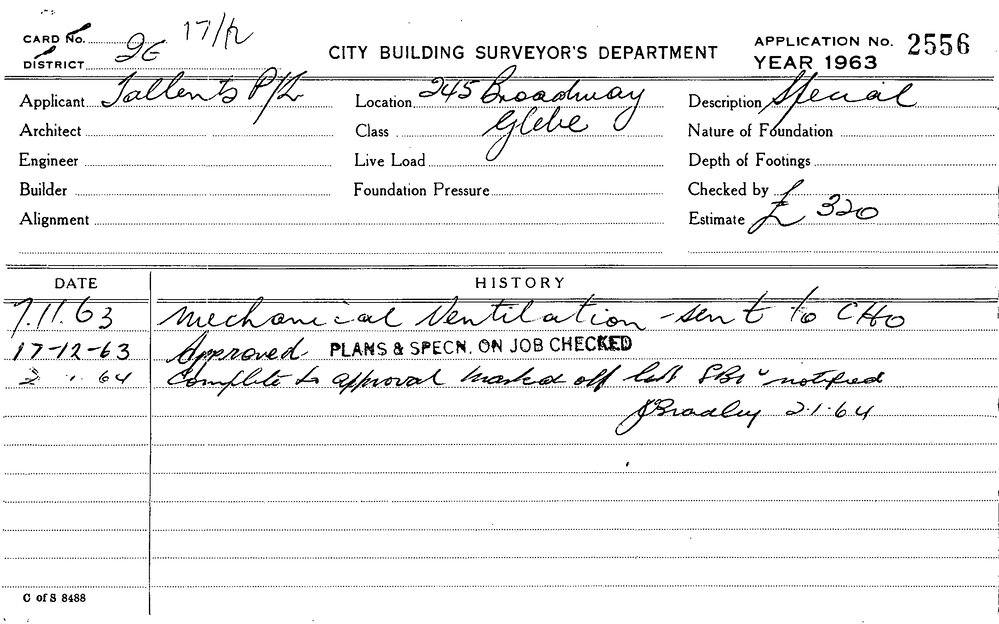 CARD No. 17/12
DISTRICT 2E
CITY BUILDING SURVEYOR'S DEPARTMENT
APPLICATION No. 2556
YEAR 1963
Applicant Tallents P/L
Location 245 Broadway
Description Special
Architect
Class Glebe
Nature of Foundation
Engineer
Live Load
Depth of Footings
Builder
Foundation Pressure
Checked by
Alignment
Estimate £ 320
DATE HISTORY
7.11.63 Mechanical Ventilation - sent to CHO
17-12-63 Approved. PLANS & SPECN. ON JOB CHECKED
2 1. 64 Complete to approval marked off notified
JBradley 2.1.64
C of S 8488